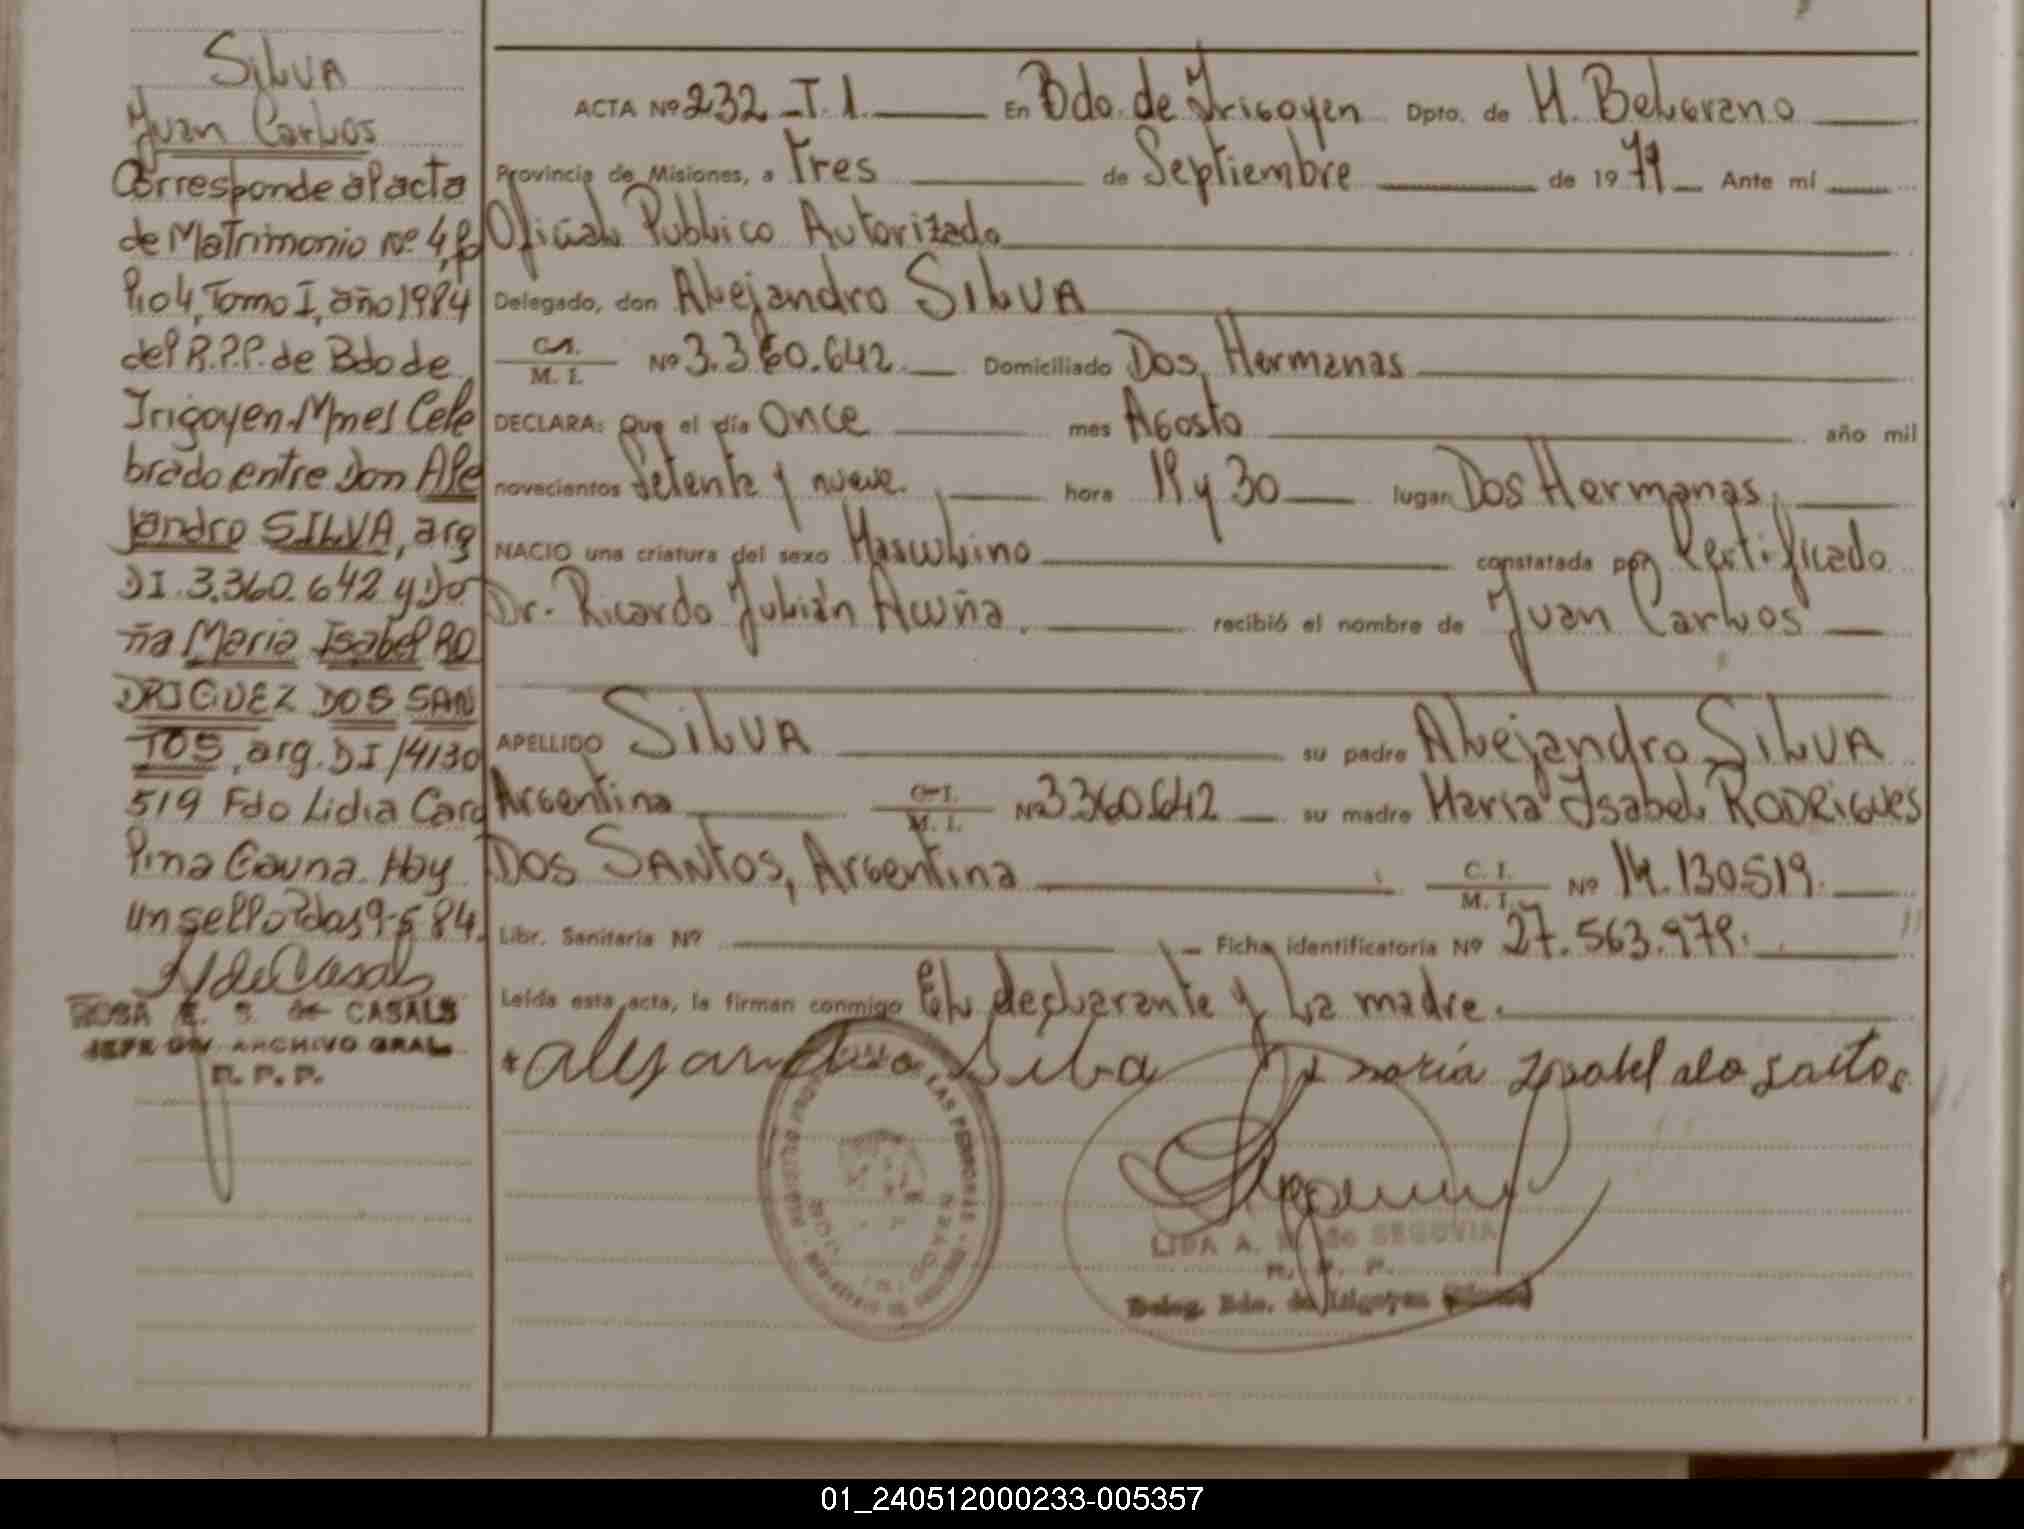 SilVA
Juan Carlos
Corresponde al acta
de Matrimonio Nº 4, fo
lio 4, Tomo I, año 1984
del R.P.P. de Bdo de
Irigoyen. Mnes Cele
brado entre Don Ale
jandro SILVA, arg
DI. 3.360.642 y Do
ña Maria Isabel RO
DRIGUEZ DOS SAN
TOS, arg. DI 14130
519 Fdo Lidia Caro
lina Gauna. Hay
un sello Pdas 9-5 84.
ROSA E. S. de CASALS
JEFE DIV. ARCHIVO GRAL.
R. P. P.
ACTA Nº 232 - T. 1. En Bdo. de Irigoyen Dpto. de M. Belgrano
Provincia de Misiones, a Tres de Septiembre de 1979 Ante mí
Oficial Publico Autorizado
Delegado, don Alejandro SILVA
C.I. / M. I. Nº 3.360.642. Domiciliado Dos Hermanas
DECLARA: Que el día Once mes Agosto año mil
novecientos Setenta y nueve. hora 19 y 30 lugar Dos Hermanas,
NACIO una criatura del sexo Masculino constatada por Certificado
Dr. Ricardo Julián Acuña. recibió el nombre de Juan Carlos
APELLIDO SilVA su padre Alejandro SilVA
Argentina C.I. / M. I. Nº 3360.642 su madre Maria Isabel RODRIGUES
DOS SANTOS, Argentina C. I. / M. I. Nº 14.130519.
Libr. Sanitaria Nº Ficha identificatoria Nº 27.563.979.
Leída esta acta, la firman conmigo El declarante y La madre.
alejandro Silba maría Isabel do santos
LIDA A. de SEGOVIA
R. P. P.
Deleg. Bdo. de Irigoyen
01_240512000233-005357